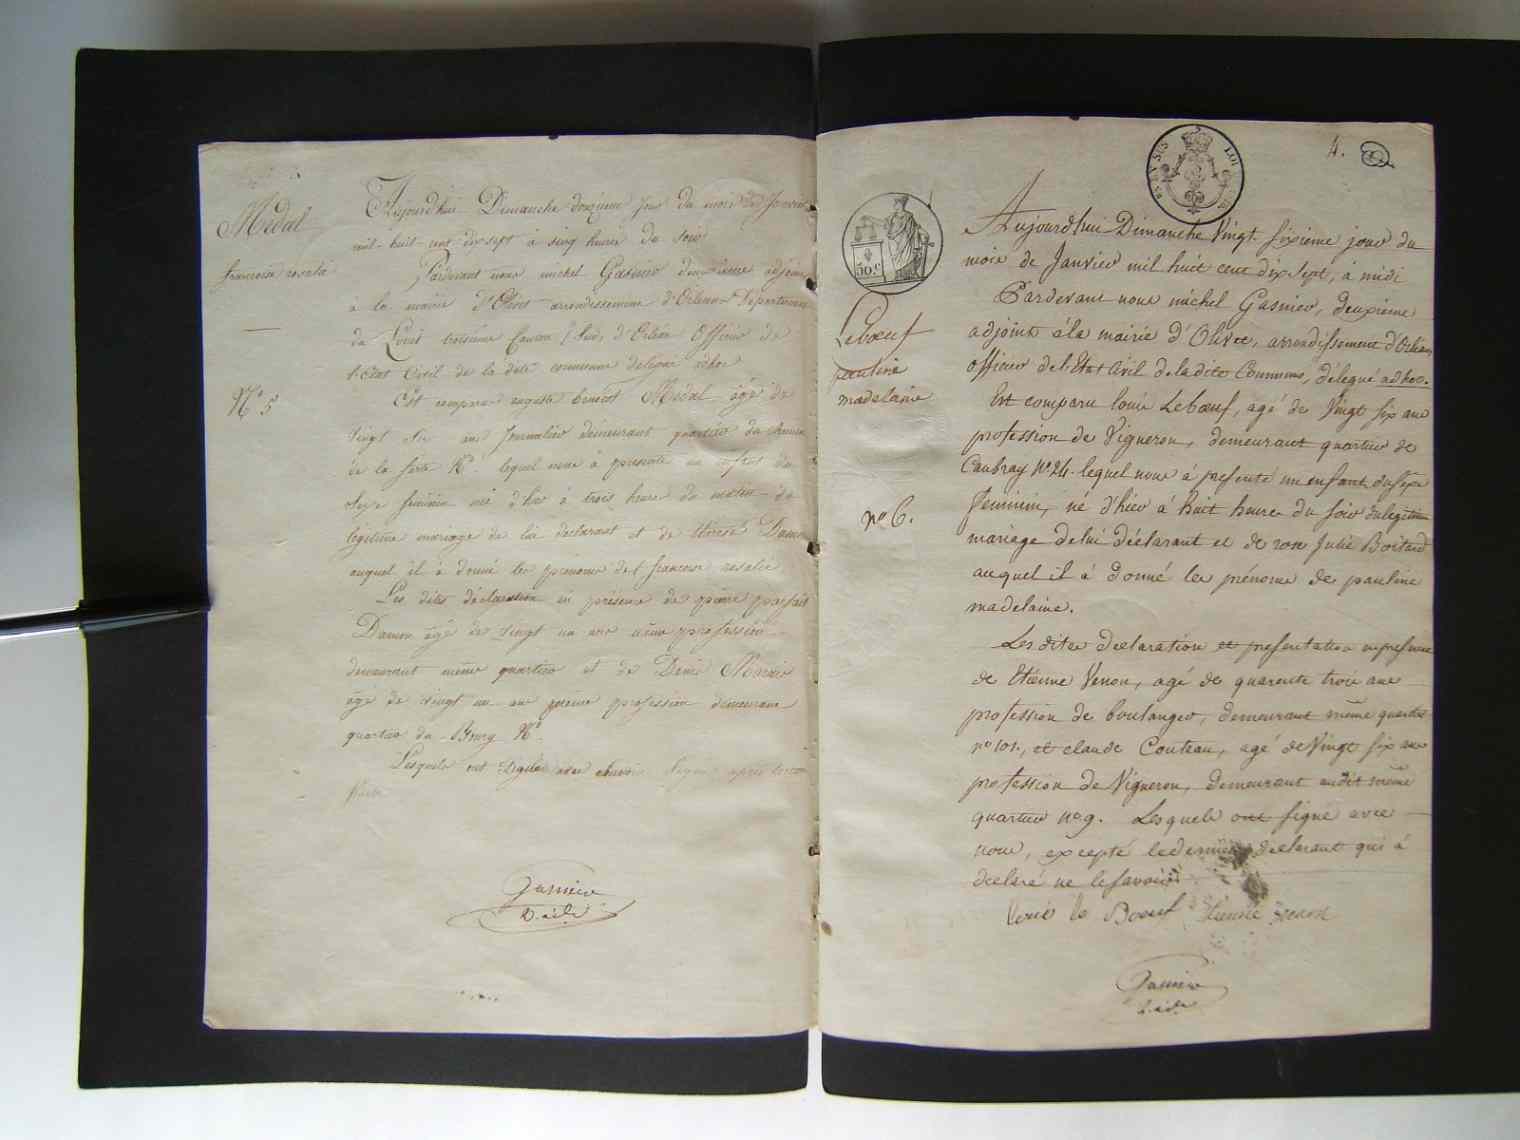 Médal
françoise rosalie
N° 5
Aujourd'hui Dimanche douzieme jour du mois de Janvier
mil huit cent dix sept à cinq heures du soir
Pardevant nous michel Gasnier deuxieme adjoint
à la mairie d'Olivet arrondissement d'Orléans Departement
du Loiret troisième Canton Sud, d'Orléan Officier de
l'état Civil de la dite commune délégué adhoc
C'est comparu auguste benoist Médal âgé de
vingt six ans Journalier demeurant quartier du chemin
de la ferté N°. lequel nous à presenté un enfant du
sexe féminin né d'hier à trois heures du matin de
legitime mariage de lui déclarant et de thérèse Damon
auquel il à donné les prénoms de françoise rosalie
Les dites déclaration en présence de pierre parfait
Damon âgé de vingt un ans même profession
demeurant même quartier et de Denis
âgé de vingt un ans profession demeurant
quartier du Bourg N°.
Lesquels ont après lecture
faite
Gasnier
4.
50.c
Leboeuf
pauline
madelaine
n° 6.
Aujourd'hui Dimanche Vingt sixieme jour du
mois de Janvier mil huit cent dix sept, à midi
Pardevant nous michel Gasnier, deuxième
adjoint à la mairie d'Olivet, arrondissement d'Orléans,
officier de l'Etat Civil de la dite Commune, délégué adhoc.
Est comparu louis Leboeuf, agé de Vingt six ans
profession de Vigneron, demeurant quartier de
Caubray N° 24. lequel nous à presenté un enfant du sexe
feminin, né d'hier à huit heures du soir du legitime
mariage de lui déclarant et de rose Julie Boitard
auquel il à donné les prénoms de pauline
madelaine.
Les dites declaration et presentation en presence
de Etienne Venon, agé de quarente trois ans
profession de boulanger, demeurant même quartier
n° 101., et claude Couteau, agé de Vingt six ans
profession de Vigneron, demeurant audit même
quartier n° 9. Lesquels ont signé avec
nous, excepté le dernier declarant qui à
declaré ne le savoir
louis le Boeuf Etienne Venon
Gasnier